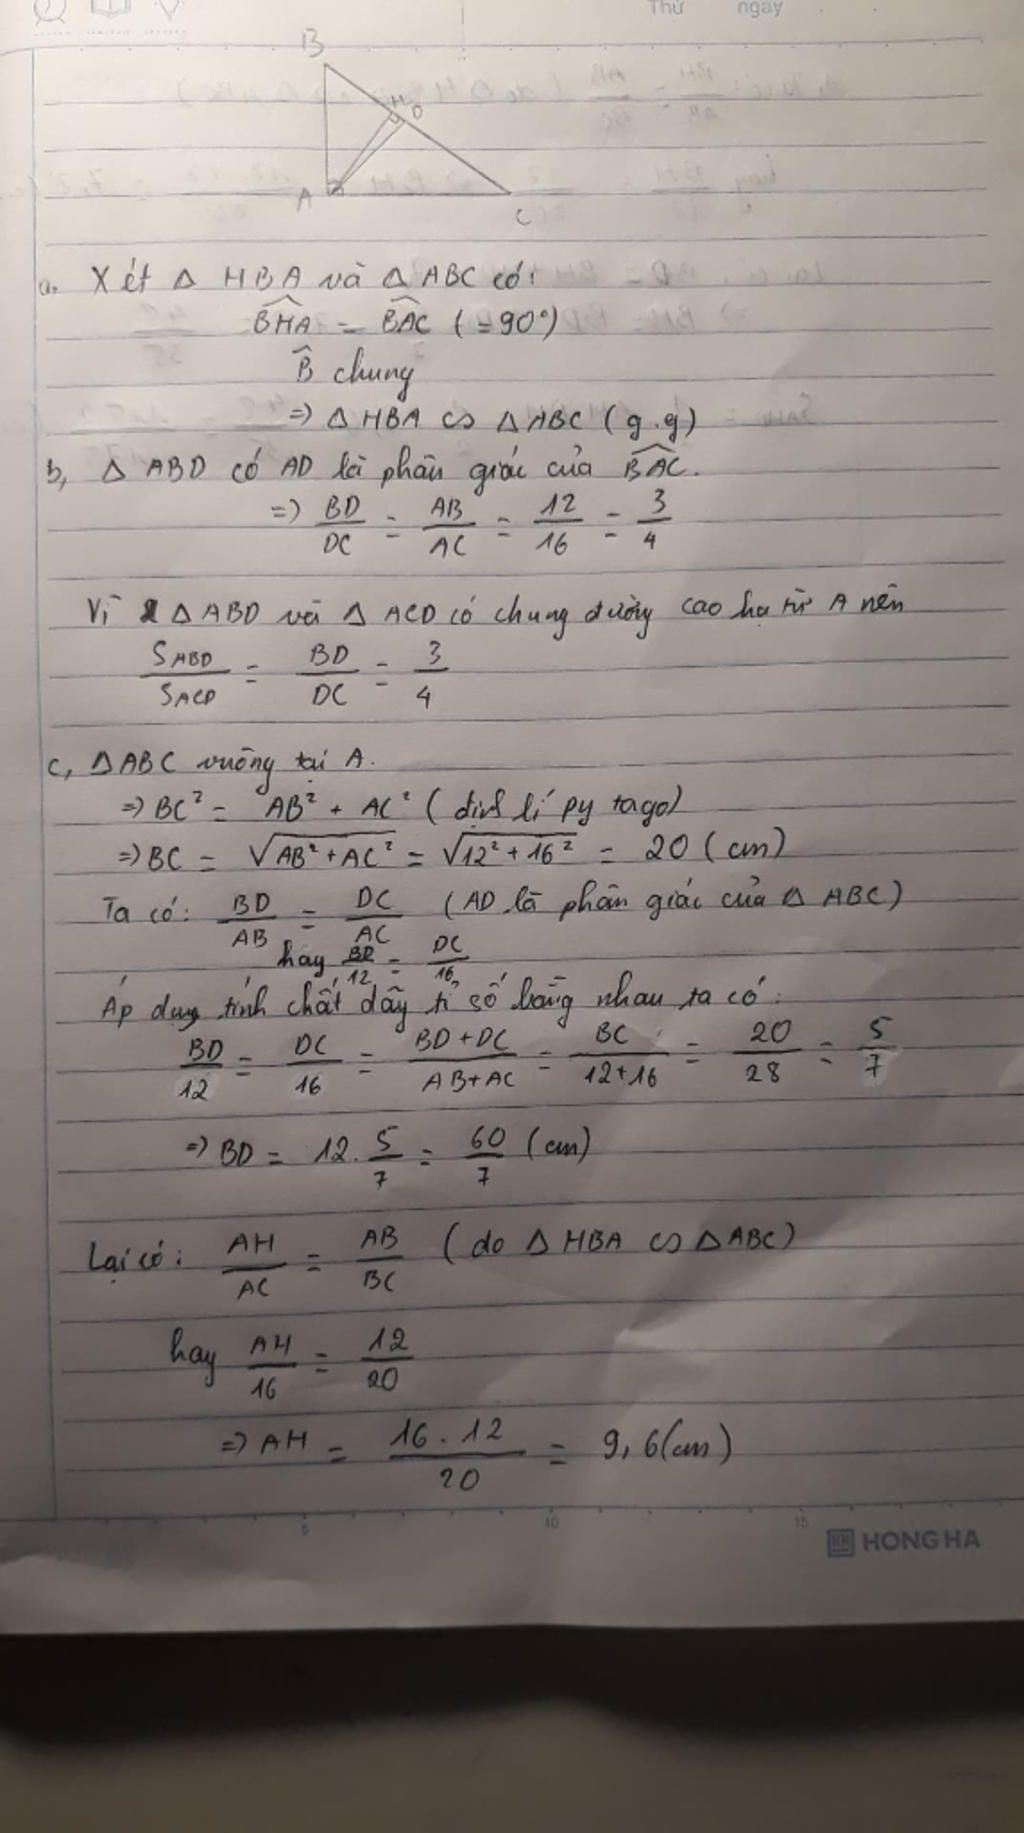 Thứ ngày
B
H
D
A
C
a. Xét Δ HBA và Δ ABC có:
BHA = BAC (=90°)
B chung
=> Δ HBA ∽ Δ ABC (g.g)
b, Δ ABD có AD là phân giác của BAC.
=> BD/DC = AB/AC = 12/16 = 3/4
Vì Δ ABD và Δ ACD có chung đường cao hạ từ A nên
SABD/SACD = BD/DC = 3/4
c, ΔABC vuông tại A.
=> BC² = AB² + AC² (định lí py tago)
=> BC = √AB²+AC² = √12²+16² = 20 (cm)
Ta có: BD/AB = DC/AC (AD là phân giác của Δ ABC)
hay BD/12 = DC/16
Áp dụng tính chất dãy tỉ số bằng nhau ta có:
BD/12 = DC/16 = BD+DC/AB+AC = BC/12+16 = 20/28 = 5/7
=> BD = 12. 5/7 = 60/7 (cm)
Lại có: AH/AC = AB/BC (do Δ HBA ∽ ΔABC)
hay AH/16 = 12/20
=> AH = 16.12/20 = 9,6(cm)
5 10 15
HH HONG HA